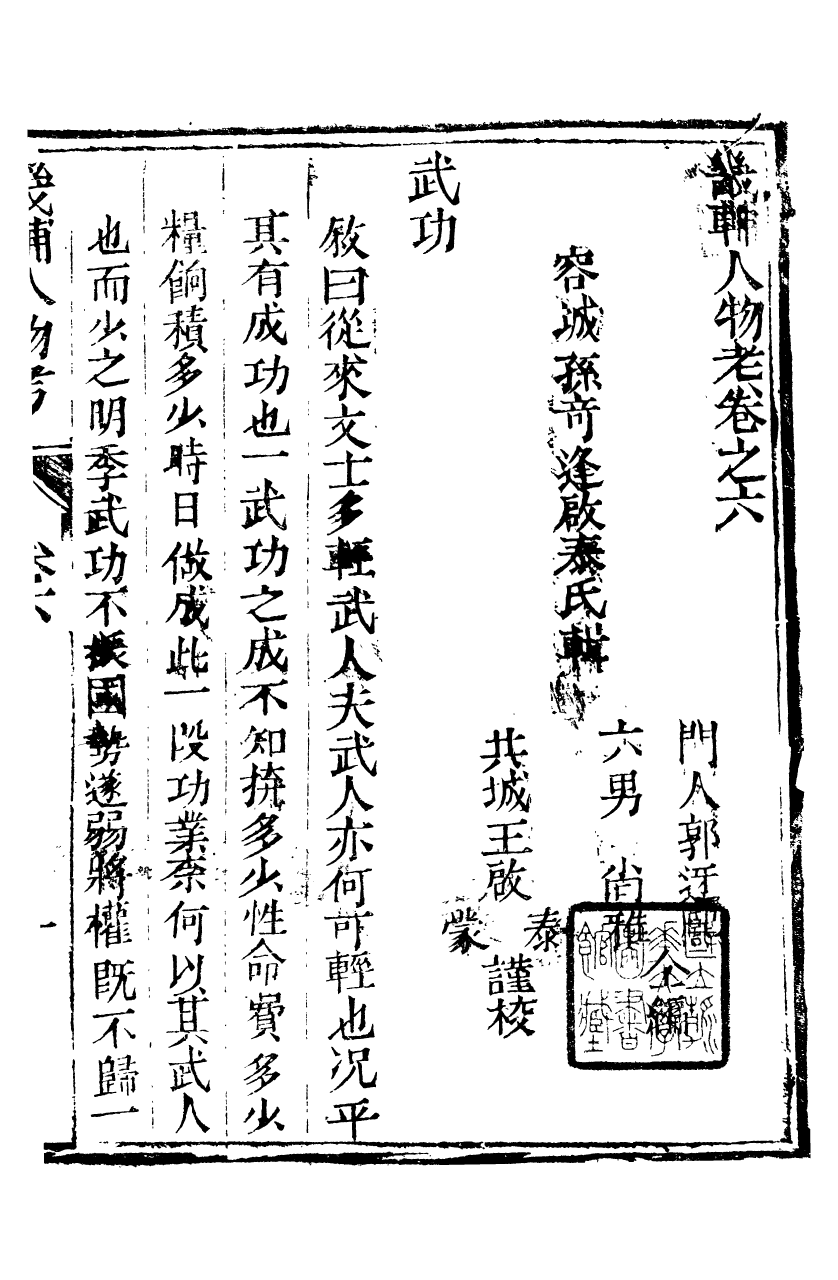 畿輔人物考卷之六
容城孫奇逢啟泰氏輯
門人郭 仝編
六男 尚雅
共城王啟泰蒙謹校
武功
敘曰從來文士多輕武人夫武人亦何可輕也况平
其有成功也一武功之成不知𢬵多少性命賫多少
糧餉積多少時日做成此一段功業柰何以其武人
也而少之明季武功不振國勢遂弱將權旣不歸一
畿輔人物考
卷六
一